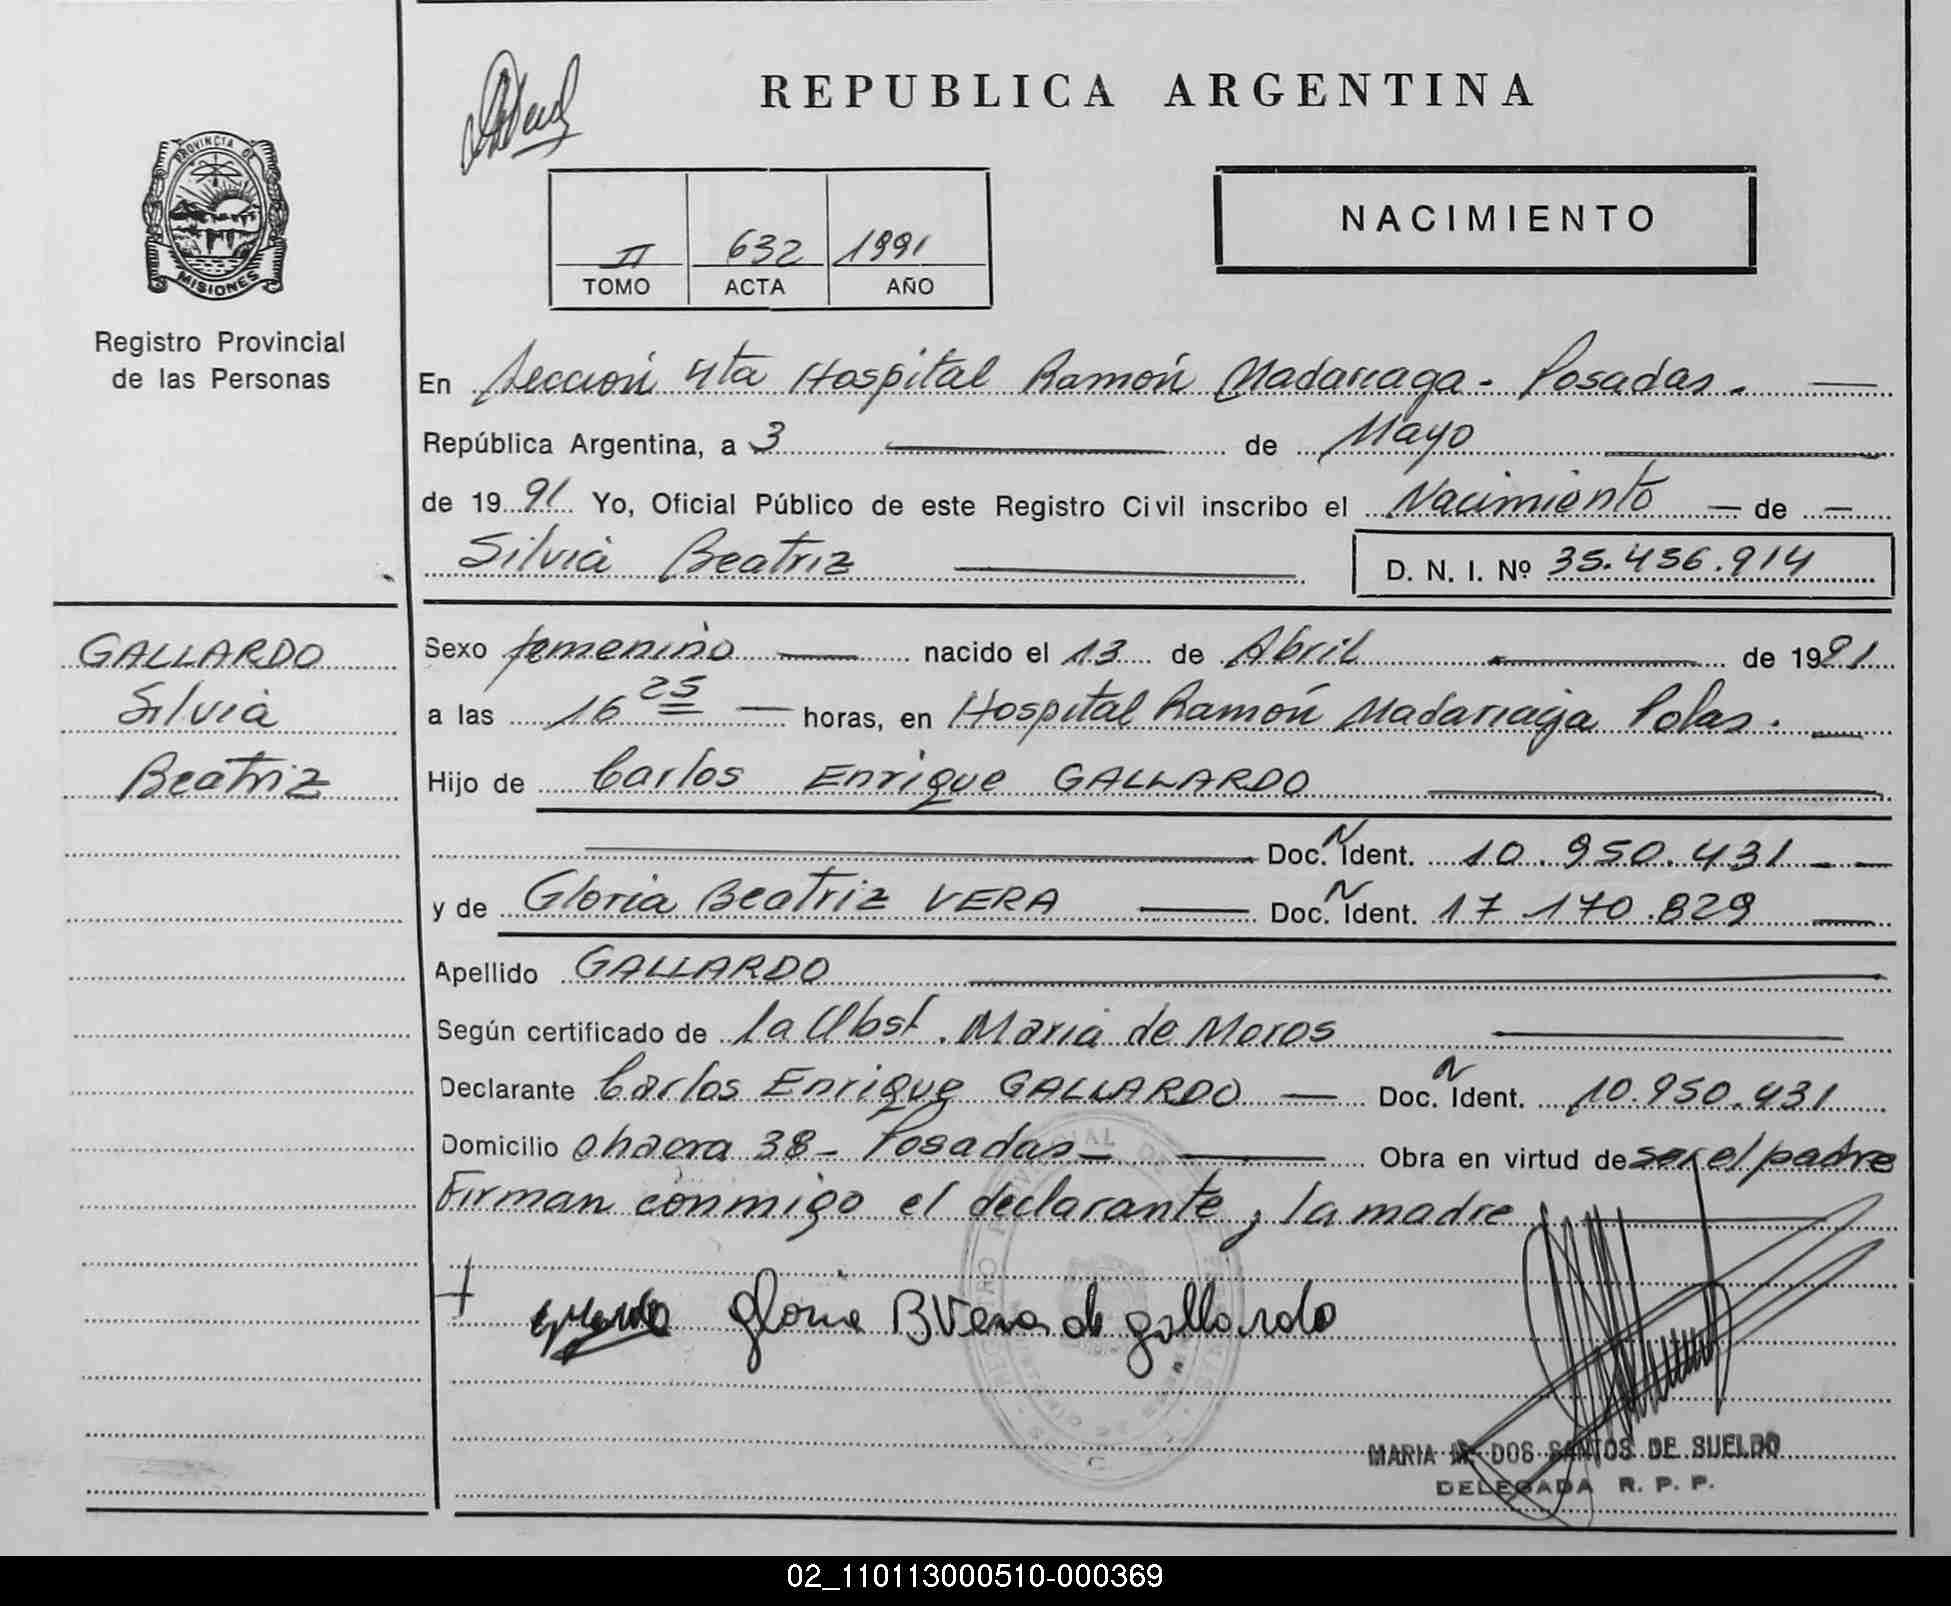 REPUBLICA ARGENTINA
PROVINCIA DE
MISIONES
Registro Provincial
de las Personas
II 632 1991
TOMO ACTA AÑO
NACIMIENTO
En Sección 4ta Hospital Ramón Madariaga - Posadas. —
República Argentina, a 3 — de Mayo —
de 1991 Yo, Oficial Público de este Registro Civil inscribo el Nacimiento — de —
Silvia Beatriz — D. N. I. Nº 35.456.914
GALLARDO
Silvia
Beatriz
Sexo femenino — nacido el 13 de Abril — de 1991
a las 16 25 — horas, en Hospital Ramón Madariaga Pdas. —
Hijo de Carlos Enrique GALLARDO —
— Doc. N Ident. 10.950.431 — —
y de Gloria Beatriz VERA — Doc. N Ident. 17 170.829 —
Apellido GALLARDO —
Según certificado de la Obst. Maria de Moros —
Declarante Carlos Enrique GALLARDO — Doc. N Ident. 10.950.431
Domicilio chacra 38 - Posadas — Obra en virtud de ser el padre
Firman conmigo el declarante, la madre —
Gloria B Vera de gallardo
MARIA DOS SANTOS DE SUELDO
DELEGADA R. P. P.
02_110113000510-000369